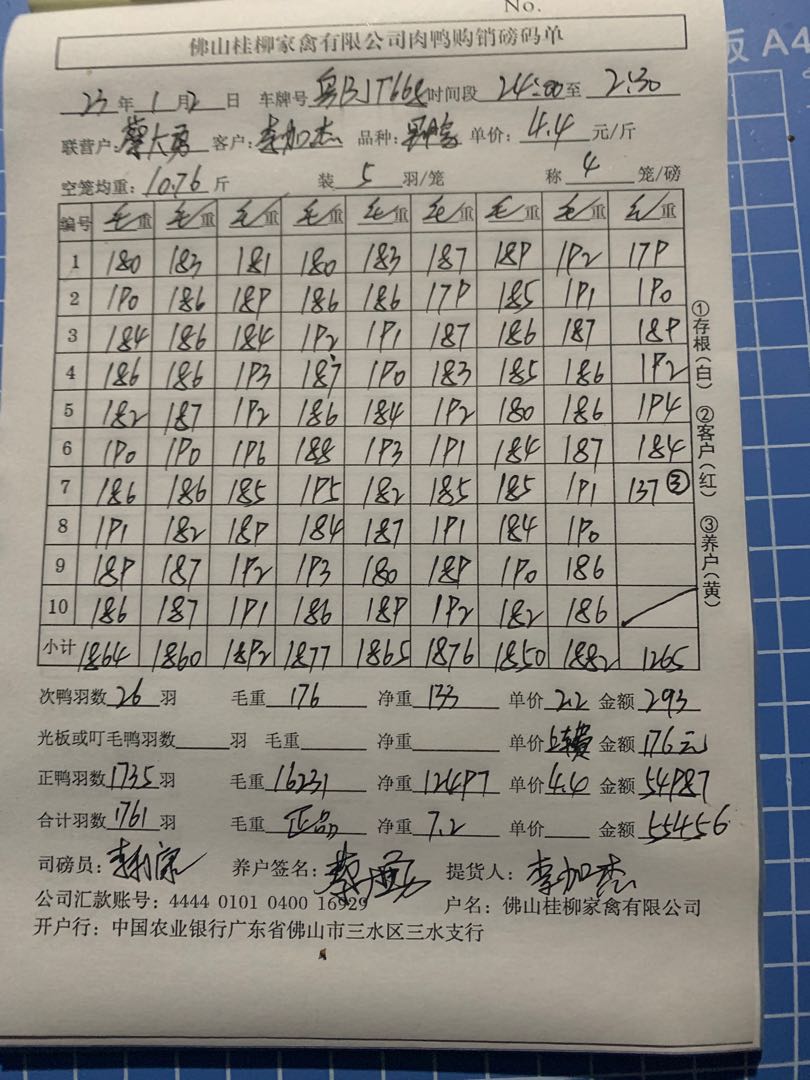 No.
佛山桂柳家禽有限公司肉鸭购销磅码单
23年1月2日 车牌号粤BJT668时间段24:00至2:30
联营户:蔡大勇 客户:李加杰 品种: 单价:4.4元/斤
空笼均重:10.76斤 装5羽/笼 称4笼/磅
编号 毛重 毛重 毛重 毛重 毛重 毛重 毛重 毛重 毛重
1 180 183 181 180 183 187 189 192 179
2 190 186 189 186 186 179 185 191 190
3 184 186 184 192 191 187 186 187 189
4 186 186 193 187 190 183 185 186 192
5 182 187 192 186 184 192 180 186 194
6 190 190 196 188 193 191 184 187 184
7 186 186 185 195 182 185 185 191 137③
8 191 182 189 184 187 191 184 190
9 189 187 192 193 180 189 190 186
10 186 187 191 186 189 192 182 186
小计 1864 1860 1892 1877 1865 1876 1850 1882 1265
①存根(白) ②客户(红) ③养户(黄)
次鸭羽数26羽 毛重176 净重133 单价2.2 金额293
光板或叮毛鸭羽数 羽 毛重 净重 单价上车费 金额176元
正鸭羽数1735羽 毛重16231 净重12497 单价4.4 金额54987
合计羽数1761羽 毛重正品 净重7.2 单价 金额55456
司磅员: 养户签名: 提货人:李加杰
公司汇款账号:4444 0101 0400 16929 户名:佛山桂柳家禽有限公司
开户行:中国农业银行广东省佛山市三水区三水支行
板 A4